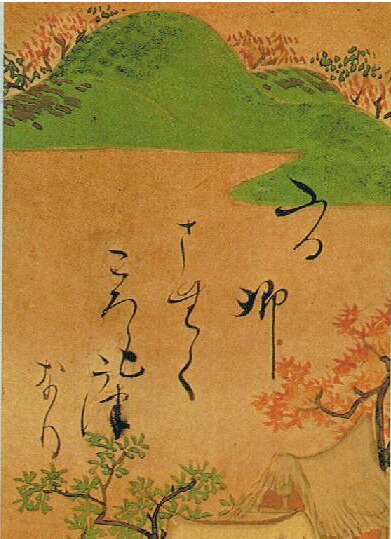 ふる郷
さむく
ころもうつ
なり